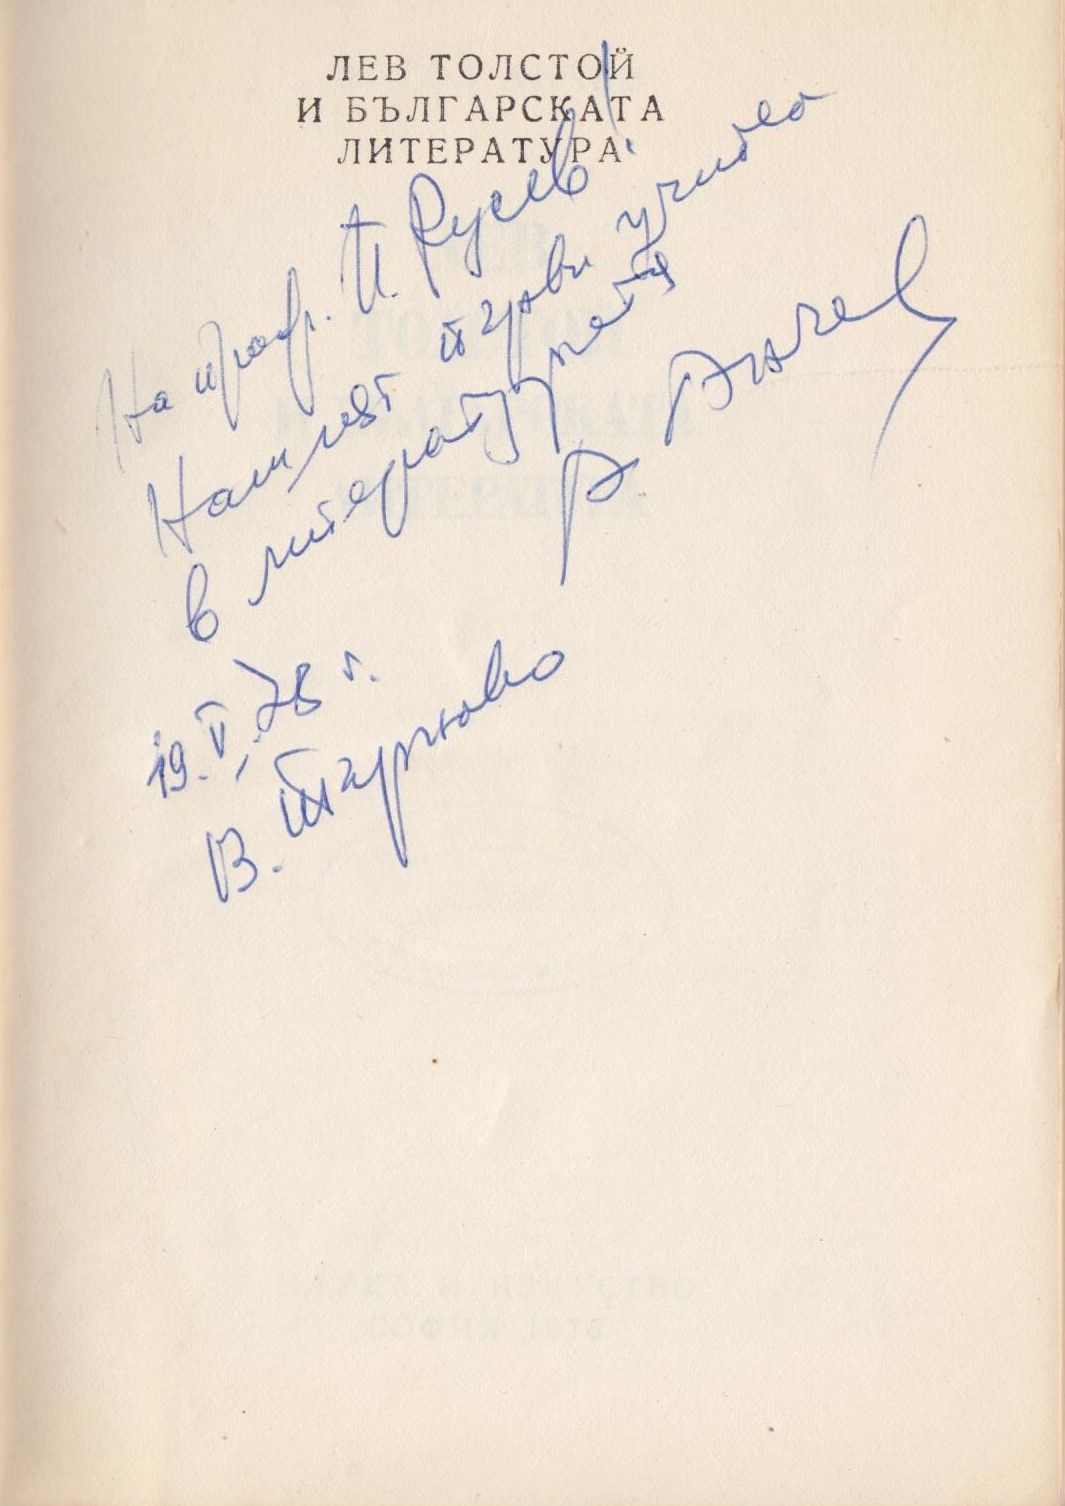 ЛЕВ ТОЛСТОЙ
И БЪЛГАРСКАТА
ЛИТЕРАТУРА
На проф. П. Русев!
Нашият първи учител
в литературата
Р.
19.V.78 г.
В. Търново
НАУКА И ИЗКУСТВО
СОФИЯ